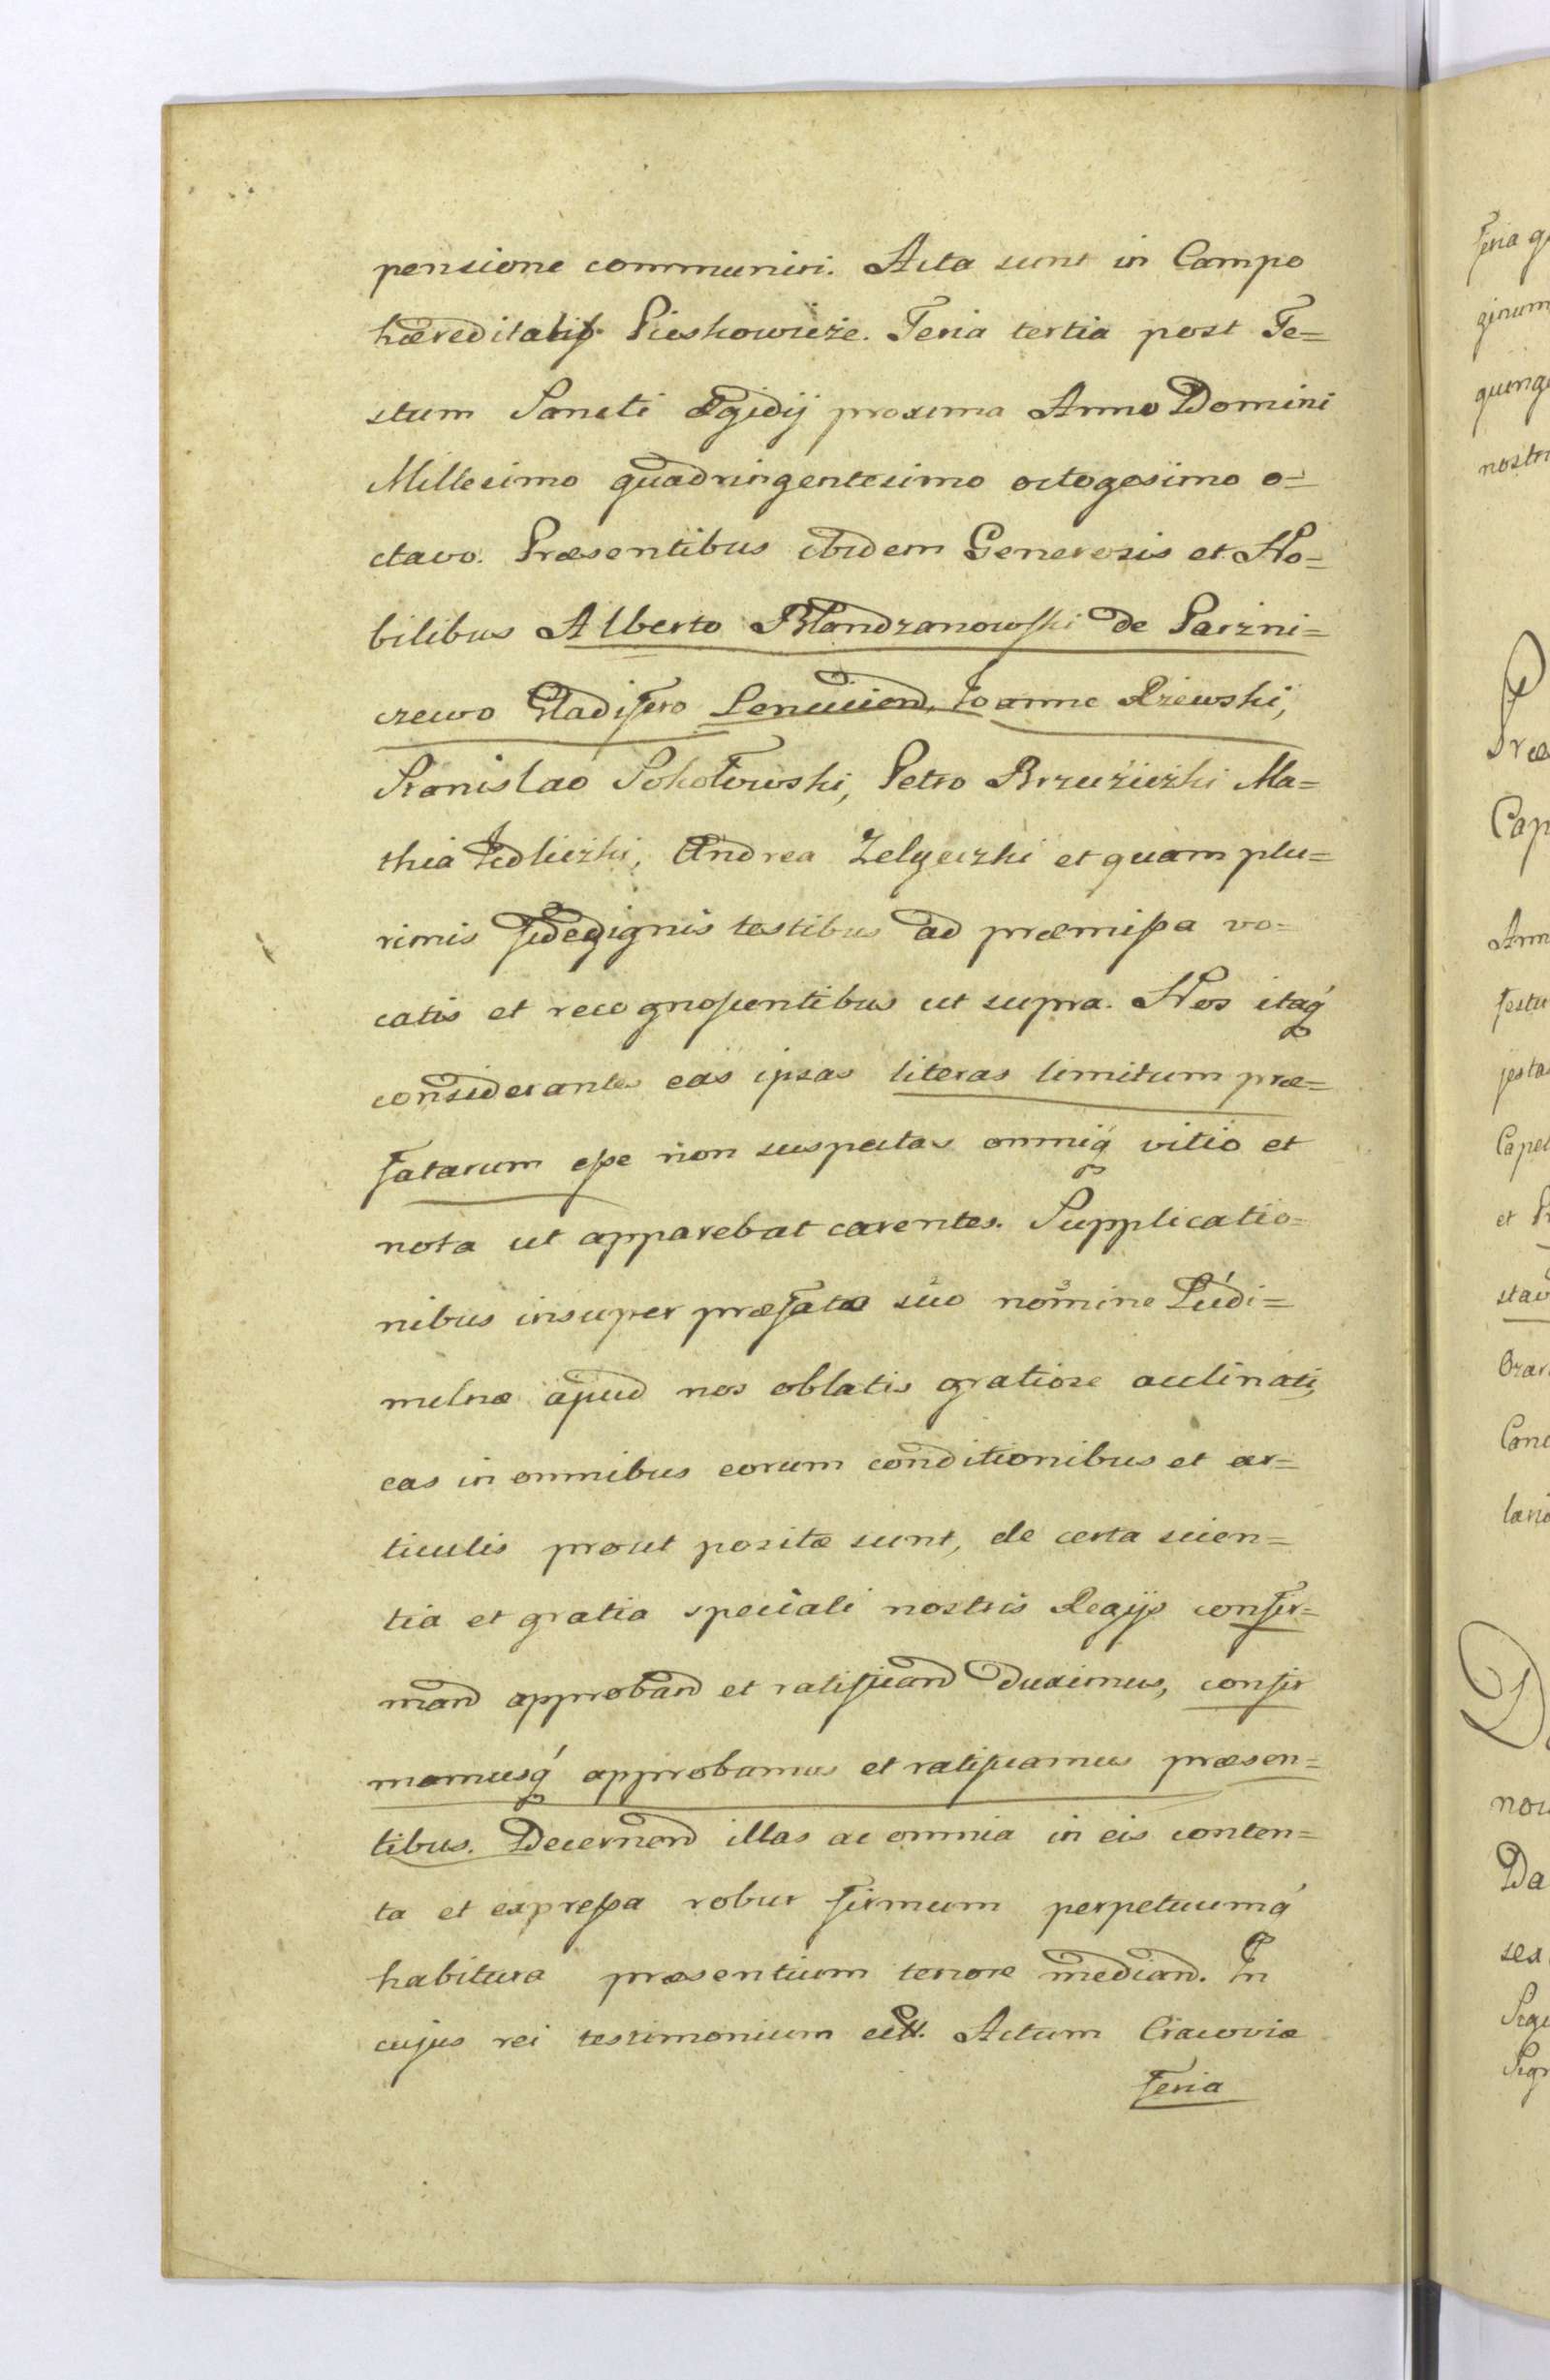 pensione communiri. Acta sunt in Campo
hæreditatis Pieskowicze. Feria tertia post Fe=
stum Sancti Ægidij proxima Anno Domini
Millesimo quadringentesimo octogesimo o=
ctavo. Præsentibus ibidem Generosis et No=
bilibus Alberto Mlandzanowski de Parzni=
czewo Gladifero Lencicien, Joanne Rżewski,
Stanislao Sokołowski, Petro Brzuźiczki Ma=
thia Jedliczki, Andrea Zelgeczki et quam plu=
rimis fidedignis testibus ad præmissa vo=
catis et recognoscentibus ut supra. Nos itaq́
considerantes eas ipsas literas limitum præ=
fatarum esse non suspectas omniq́ vitio et
nota ut apparebat carentes. Supplicatio=
nibus insuper præfatæ suo nomine Ludi=
milnæ apud nos oblatis gratiose acclinati,
eas in omnibus eorum conditionibus et ar=
ticulis prout positæ sunt, de certa scien=
tia et gratia speciali nostris Regijs confir=
mand approband et ratificand duximus, confir
mamusq́ approbamus et ratificamus præsen=
tibus. Decernend illas ac omnia in eis conten=
ta et expressa robur firmum perpetuumq́
habitura præsentium tenore mediand. In
cujus rei testimonium ett. Actum Cracoviæ
Feria
Feria
ginum
nostr
Præ
Cap
Ann
festu
jesta
Capel
et
stav
Orar
Cond
land
D
nov
Da
sex